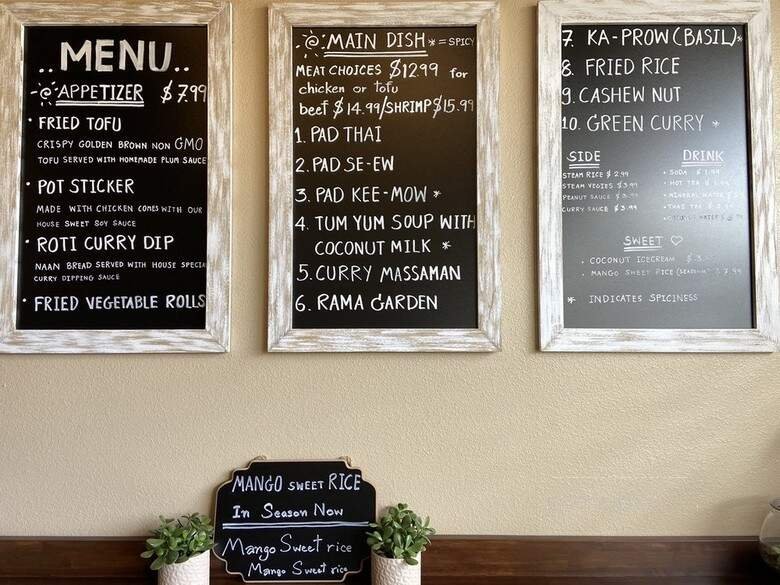 ..MENU..
APPETIZER $7.99
• FRIED TOFU
CRISPY GOLDEN BROWN NON GMO
TOFU SERVED WITH HOMEMADE PLUM SAUCE
• POT STICKER
MADE WITH CHICKEN COMES WITH OUR
HOUSE SWEET SOY SAUCE
• ROTI CURRY DIP
NAAN BREAD SERVED WITH HOUSE SPECIAL
CURRY DIPPING SAUCE
• FRIED VEGETABLE ROLLS
MAIN DISH * = SPICY
MEAT CHOICES $12.99 for
chicken or tofu
beef $14.99/SHRIMP $15.99
1. PAD THAI
2. PAD SE-EW
3. PAD KEE-MOW *
4. TUM YUM SOUP WITH
COCONUT MILK *
5. CURRY MASSAMAN
6. RAMA GARDEN
7. KA-PROW (BASIL)*
8. FRIED RICE
9. CASHEW NUT
10. GREEN CURRY *
SIDE
STEAM RICE $2.99
STEAM VEGIES $3.99
PEANUT SAUCE $3.99
CURRY SAUCE $3.99
DRINK
• SODA $1.99
• HOT TEA
• MINERAL WATER
• THAI TEA
• COCONUT WATER
SWEET ♡
• COCONUT ICECREAM $3.
• MANGO SWEET RICE $7.99
* INDICATES SPICINESS
MANGO SWEET RICE
In Season Now
Mango Sweet rice
Mango Sweet rice